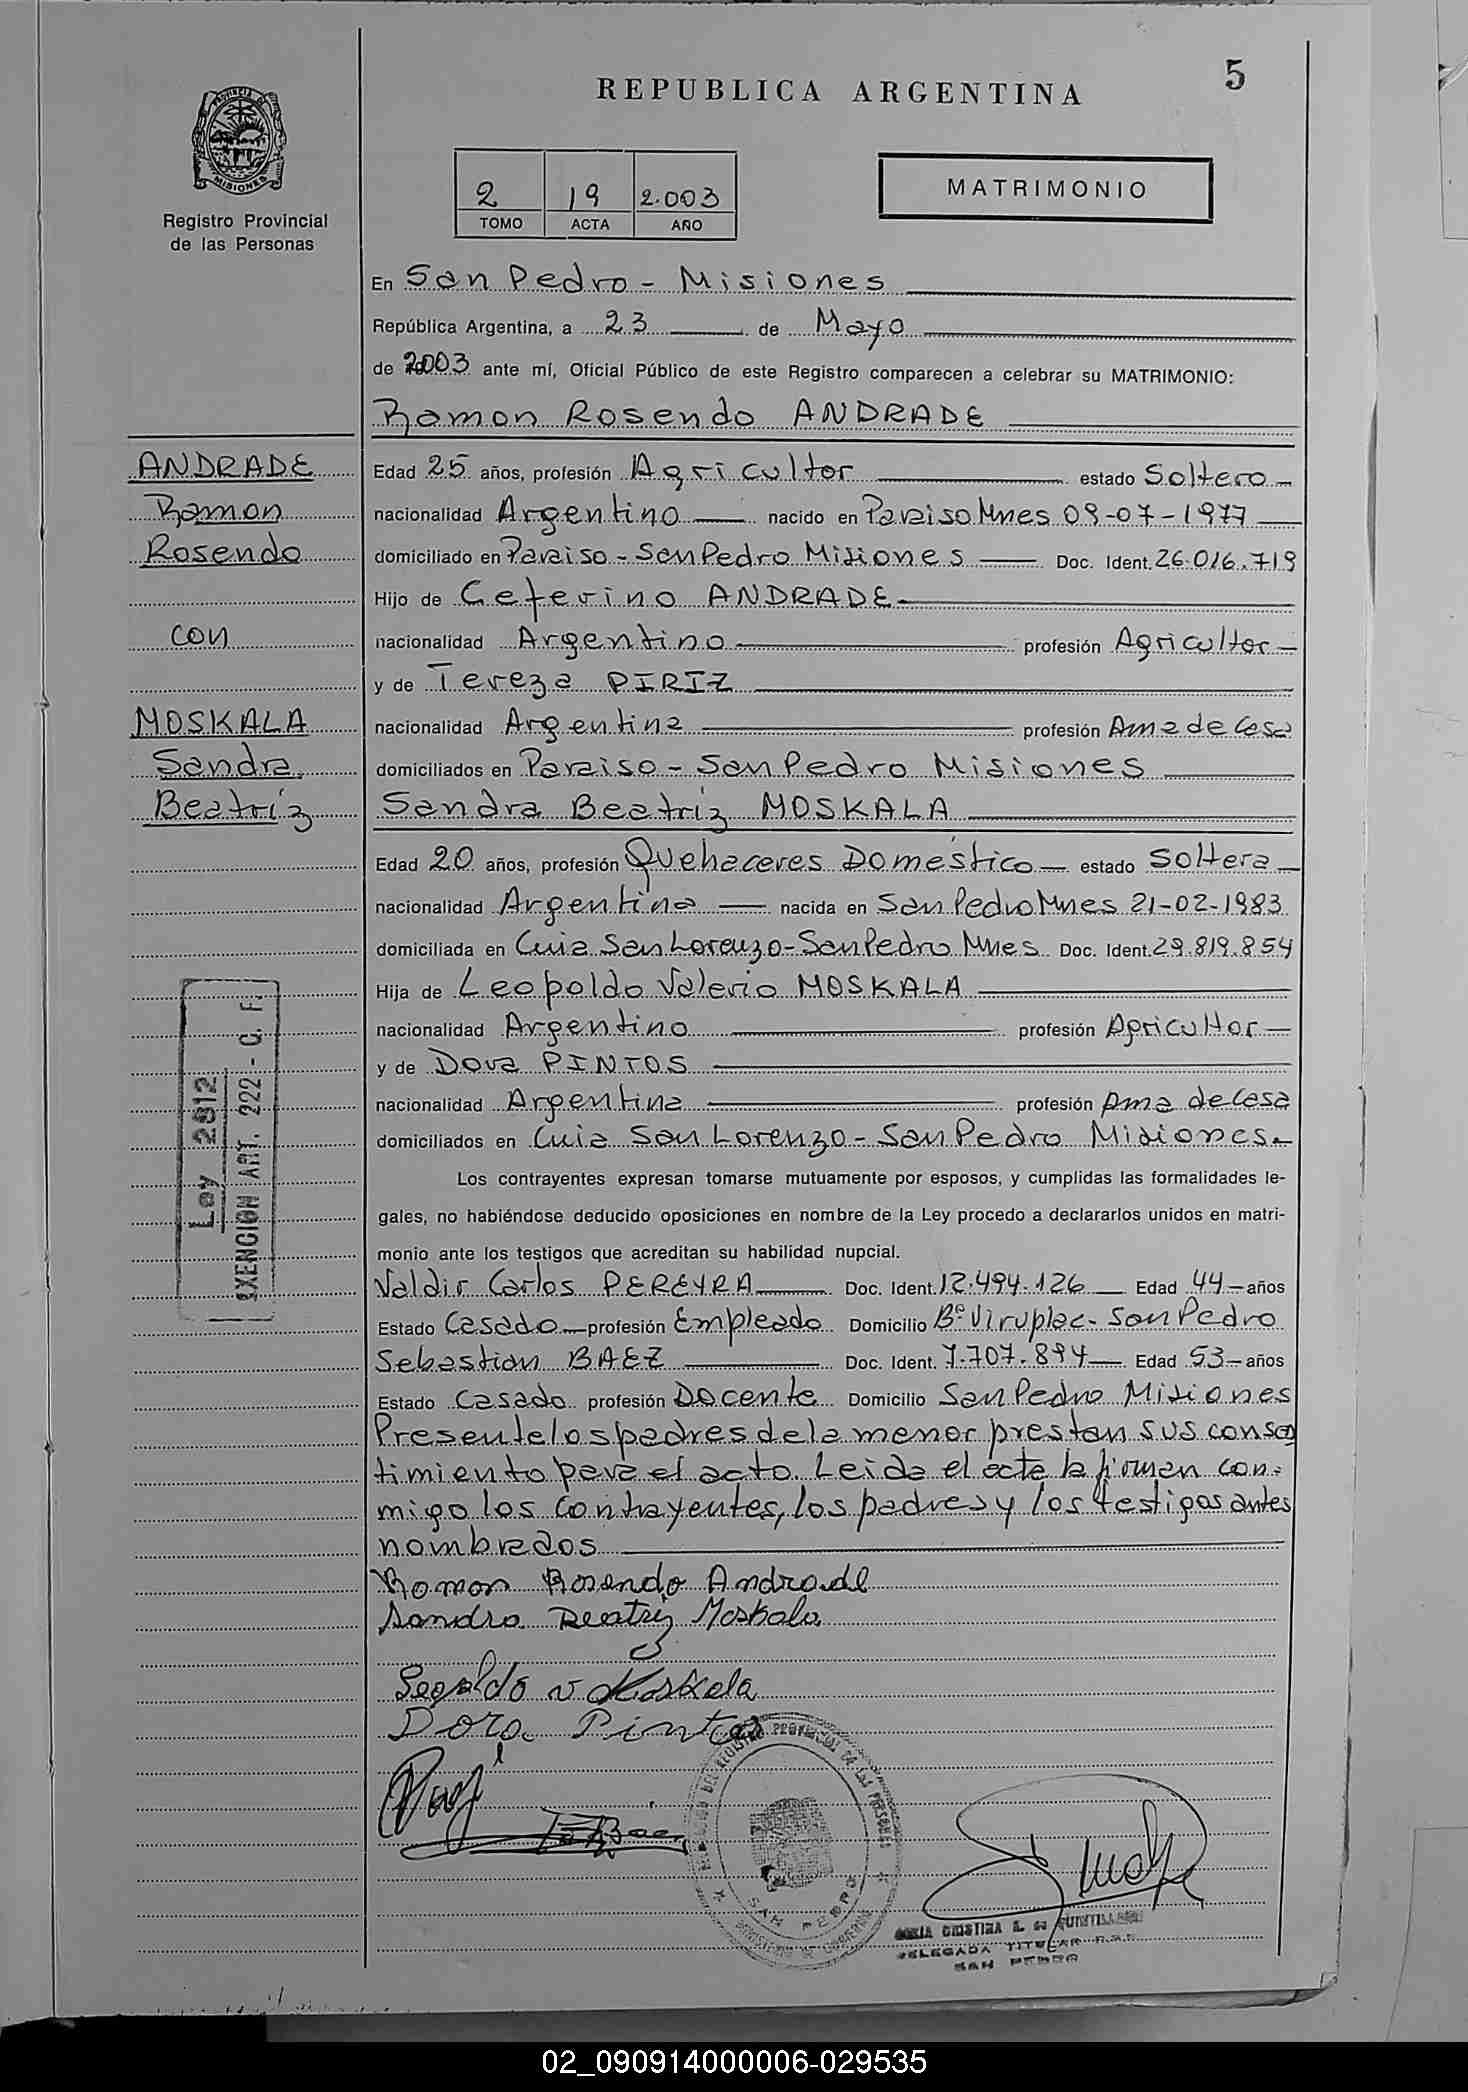 5
REPUBLICA ARGENTINA
PROVINCIA DE
MISIONES
Registro Provincial
de las Personas
2 19 2.003
TOMO ACTA AÑO
MATRIMONIO
En San Pedro - Misiones
República Argentina, a 23 de Mayo
de 2003 ante mí, Oficial Público de este Registro comparecen a celebrar su MATRIMONIO:
Ramon Rosendo ANDRADE
ANDRADE
Ramon
Rosendo
con
MOSKALA
Sandra
Beatríz
Edad 25 años, profesión Agricultor estado Soltero
nacionalidad Argentino nacido en Paraiso Mnes 09-07-1977
domiciliado en Paraiso - San Pedro Misiones Doc. Ident. 26.016.719
Hijo de Ceferino ANDRADE
nacionalidad Argentino profesión Agricultor
y de Tereza PIRIZ
nacionalidad Argentina profesión Ama de Casa
domiciliados en Paraiso - San Pedro Misiones
Sandra Beatríz MOSKALA
Edad 20 años, profesión Quehaceres Doméstico estado Soltera
nacionalidad Argentina nacida en San Pedro Mnes 21-02-1983
domiciliada en Cuia San Lorenzo - San Pedro Mnes Doc. Ident. 29.819.854
Hija de Leopoldo Valerio MOSKALA
nacionalidad Argentino profesión Agricultor
y de Dora PINTOS
nacionalidad Argentina profesión Ama de Casa
domiciliados en Cuia San Lorenzo - San Pedro Misiones.
Ley 2812
EXENCION ART. 222 - C. F.
Los contrayentes expresan tomarse mutuamente por esposos, y cumplidas las formalidades le-
gales, no habiéndose deducido oposiciones en nombre de la Ley procedo a declararlos unidos en matri-
monio ante los testigos que acreditan su habilidad nupcial.
Valdir Carlos PEREYRA Doc. Ident. 12.494.126 Edad 44 años
Estado Casado profesión Empleado Domicilio Bº Viruplac - San Pedro
Sebastian BAEZ Doc. Ident. 7.707.894 Edad 53 años
Estado Casado profesión Docente Domicilio San Pedro Misiones
Presente los padres de la menor prestan sus consen
timiento para el acto. Leida el acta la firman con-
migo los contrayentes, los padres y los testigos antes
nombrados
Ramon Rosendo Andrade
Sandra Beatriz Moskala
Leopoldo V Moskala
Dora Pintos
DEL REGISTRO PROVINCIAL DE LAS PERSONAS
SAN PEDRO
MINISTERIO DE GOBIERNO
CRISTINA
DELEGADA TITULAR
SAN PEDRO
02_090914000006-029535